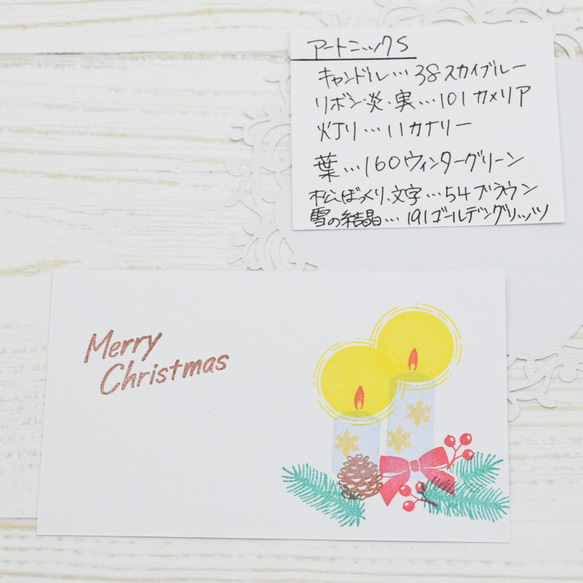 アートニックS
キャンドル…38スカイブルー
リボン・炎・実…101カメリア
灯り…11カナリー
葉…160ウィンターグリーン
松ぼっくり、文字…54ブラウン
雪の結晶…191ゴールデングリッツ
Merry
Christmas